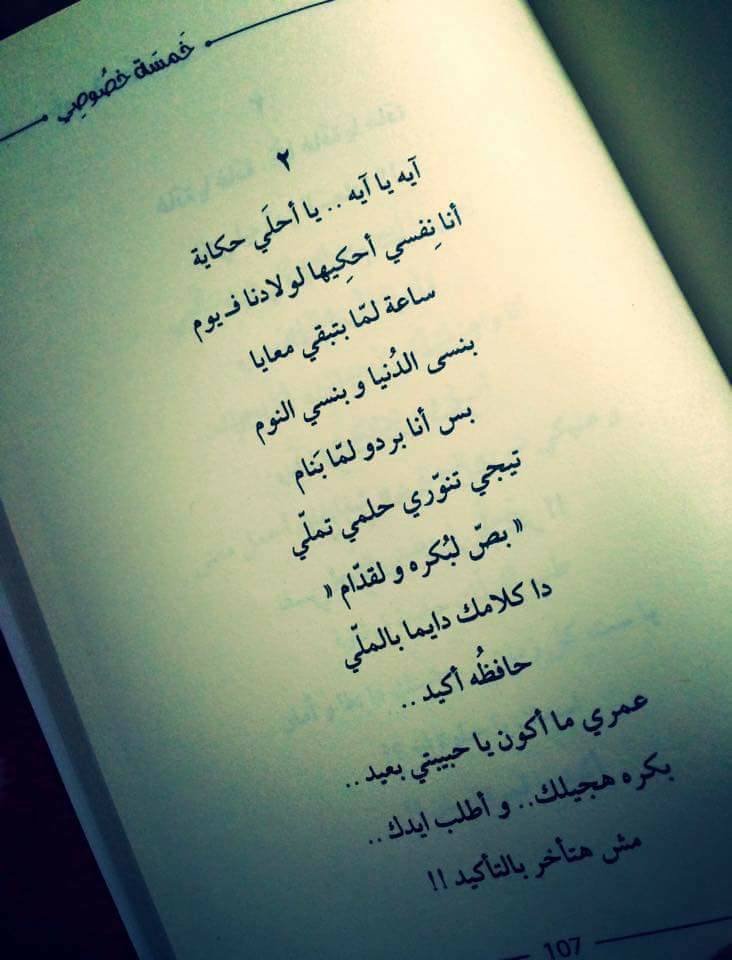 خَمسَة خصُوصِي
٢
آيه يا آيه .. يا أحلَي حكاية
أنا نِفسي أحكِيها لولادنا فـ يوم
ساعة لمّا بتبقي معايا
بنسى الدُنيا و بنسي النوم
بس أنا بردو لمّا بَنام
تيجي تنوّري حلمي تملّي
« بصّ لبُكره و لقدّام «
دا كلامك دايما بالملّي
حافظُه أكيد ..
عمري ما أكون يا حبيبتي بعيد ..
بكره هجيلك .. و أطلب ايدك ..
مش هتأخر بالتأكيد !!
107